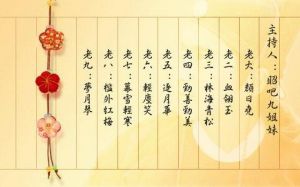 主持人：昭吧九姐妹
老大：顏日堯
老二：血翎玉
老三：林海青松
老四：勤善勤美
老五：逐月華
老六：輕塵笑
老七：暮雪輕寒
老八：檻外紅梅
老九：夢月琴